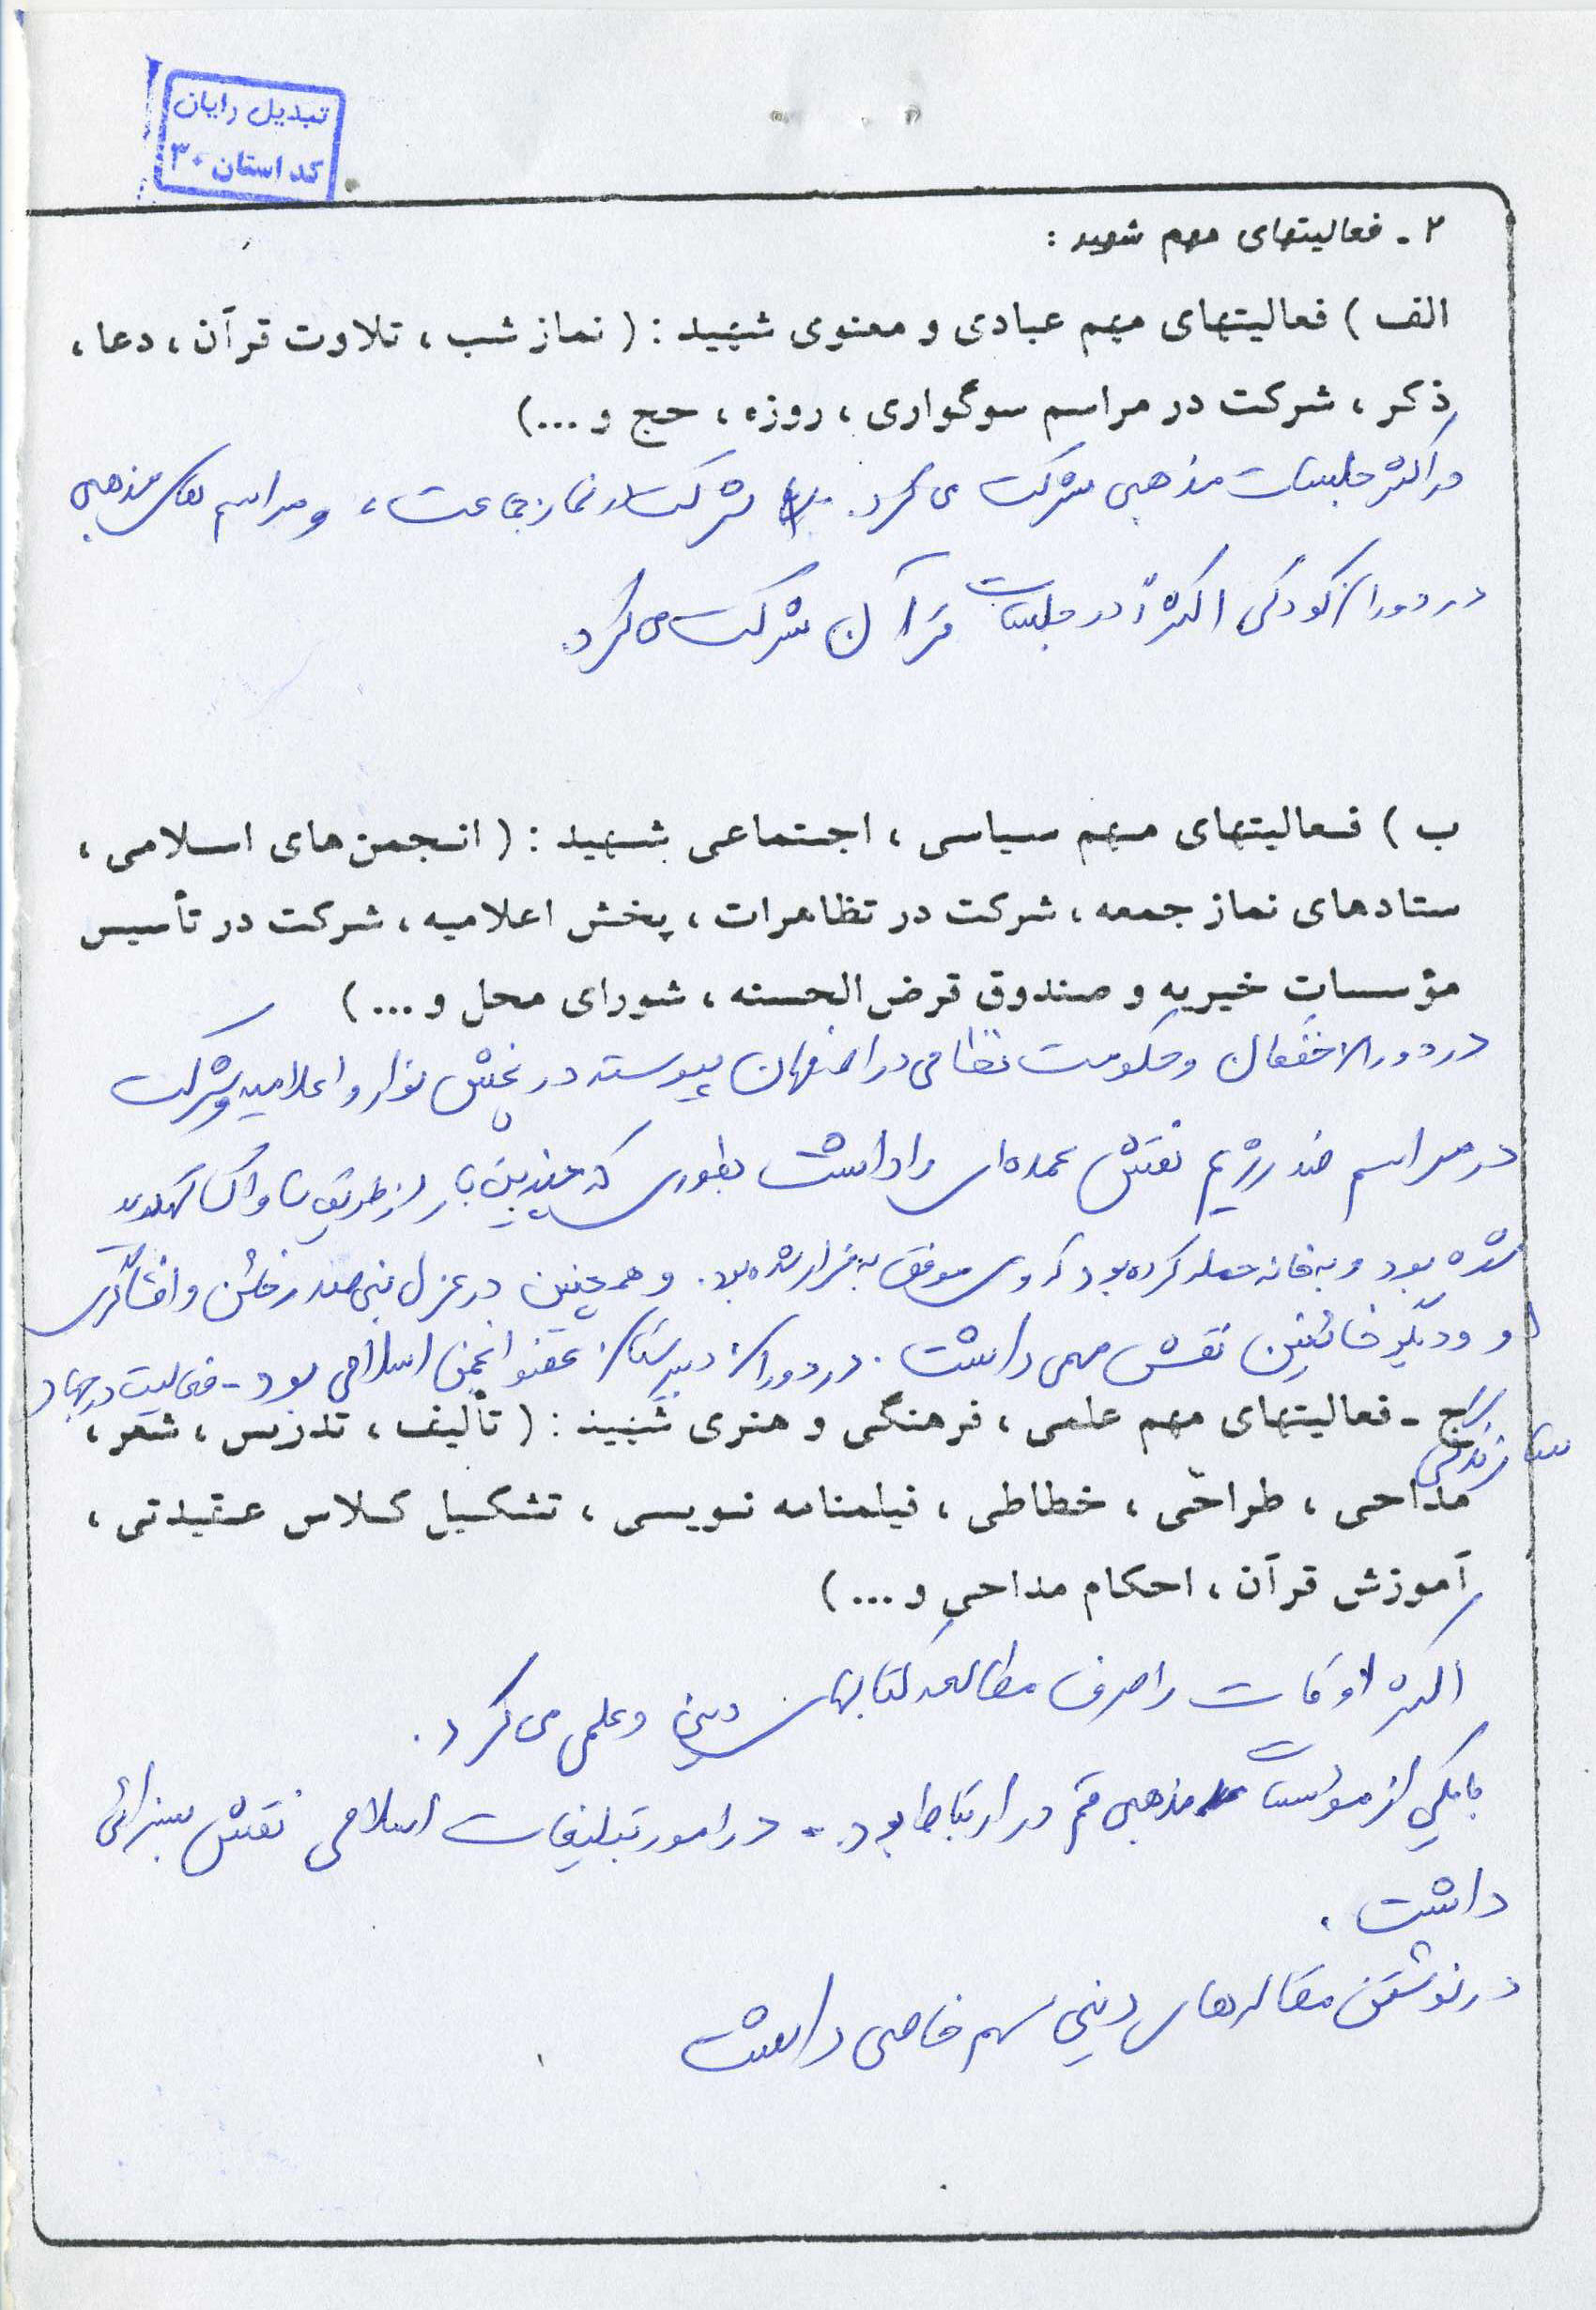 تبدیل رایان
کد استان ۳۰
۲ ـ فعالیتهای مهم شهید :
الف ) فعالیتهای مهم عبادی و معنوی شهید : ( نماز شب ، تلاوت قرآن ، دعا ،
ذکر ، شرکت در مراسم سوگواری ، روزه ، حج و ...)
در اکثر جلسات مذهبی شرکت می کرد. شرکت در نماز جماعت ، و مراسم های مذهبی
در دوران کودکی اکثراً در جلسات قرآن شرکت می کرد.
ب ) فعالیتهای مهم سیاسی ، اجتماعی شهید : ( انجمن های اسلامی ،
ستادهای نماز جمعه ، شرکت در تظاهرات ، پخش اعلامیه ، شرکت در تأسیس
مؤسسات خیریه و صندوق قرض الحسنه ، شورای محل و ... )
در دوران خفقان و حکومت نظامی در اصفهان پیوسته در پخش نوار و اعلامیه و شرکت
در مراسم ضد رژیم نقش عمده ای را داشت بطوری که چندین بار از طریق ساواک
شده بود و به خانه حمله کرده بود که وی موفق به فرار شده بود. و همچنین در عزل بنی صدر خائن و افشاگری
او و دیگر خائنین نقش مهمی داشت . در دوران دبیرستان عضو انجمن اسلامی بود - فعالیت در جهاد
سازندگی
ج ـ فعالیتهای مهم علمی ، فرهنگی و هنری شهید : ( تألیف ، تدریس ، شعر ،
مداحی ، طراحی ، خطاطی ، فیلمنامه نویسی ، تشکیل کلاس عقیدتی ،
آموزش قرآن ، احکام مداحی و ... )
اکثر اوقات را صرف مطالعه کتابهای دینی و علمی می کرد .
با یکی از مؤسسات مذهبی قم در ارتباط بود - در امور تبلیغات اسلامی نقش بسزائی
داشت .
در نوشتن مقاله های دینی سهم خاصی داشت